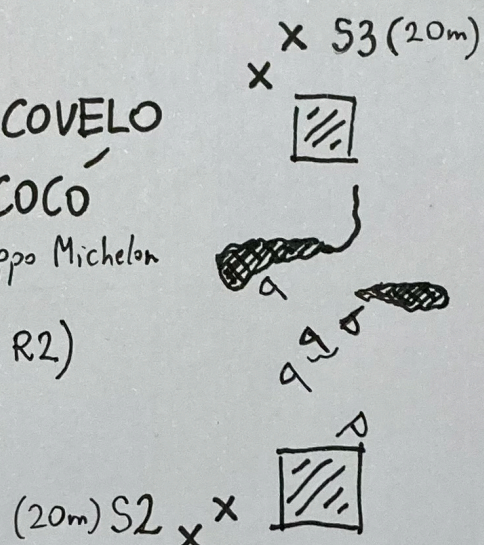 S3 (20m)
COVELO
COCÓ
opo Michelon
R2)
(20m) S2